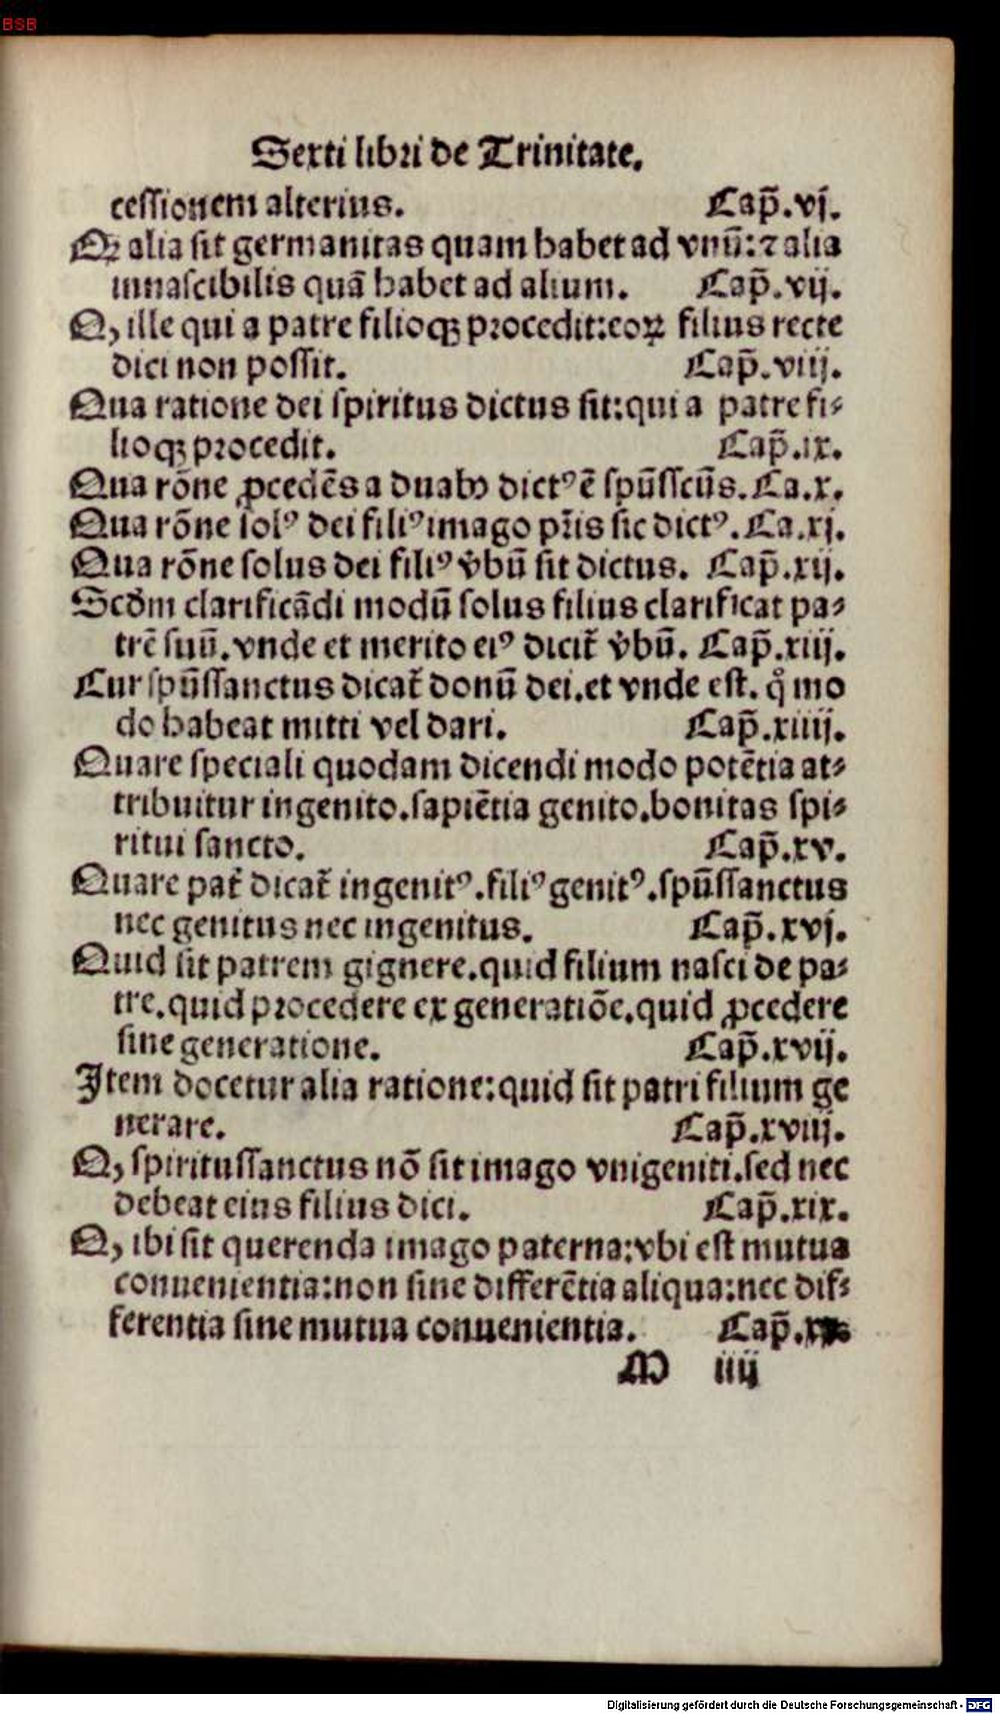 BSB
Sexti libri de Trinitate.
cessionem alterius. Cap̃.vj.
Qꝫ alia sit germanitas quam habet ad vnũ:⁊ alia
innascibilis quã habet ad alium. Cap̃.vij.
Q, ille qui a patre filioqꝫ procedit:eoꝝ filius recte
dici non possit. Cap̃.viij.
Qua ratione dei spiritus dictus sit:qui a patre fi⸗
lioqꝫ procedit. Cap̃.ix.
Qua rõne ꝓcedẽs a duabꝰ dictꝰ ẽ spũsscũs. Ca.x.
Qua rõne solꝰ dei filiꝰ imago pr̃is sic dictꝰ. Ca.xj.
Qua rõne solus dei filiꝰ v̾bũ sit dictus. Cap̃.xij.
Scðm clarificãdi modũ solus filius clarificat pa⸗
trẽ suũ.vnde et merito eiꝰ dicit̃ v̾bũ. Cap̃.xiij.
Cur spũssanctus dicat̃ donũ dei.et vnde est. qͦ mo
do habeat mitti vel dari. Cap̃.xiiij.
Quare speciali quodam dicendi modo potẽtia at⸗
tribuitur ingenito.sapiẽtia genito.bonitas spi⸗
ritui sancto. Cap̃.xv.
Quare pat̃ dicat̃ ingenitꝰ.filiꝰ genitꝰ.spũssanctus
nec genitus nec ingenitus. Cap̃.xvj.
Quid sit patrem gignere.quid filium nasci de pa⸗
tre.quid procedere ex generatiõe.quid ꝓcedere
sine generatione. Cap̃.xvij.
Item docetur alia ratione:quid sit patri filium ge
nerare. Cap̃.xviij.
Q, spiritussanctus nõ sit imago vnigeniti.sed nec
debeat eius filius dici. Cap̃.xix.
Q, ibi sit querenda imago paterna:vbi est mutua
conuenientia:non sine differẽtia aliqua:nec dif⸗
ferentia sine mutua conuenientia. Cap̃.xx.
M iiij
Digitalisierung gefördert durch die Deutsche Forschungsgemeinschaft - DFG